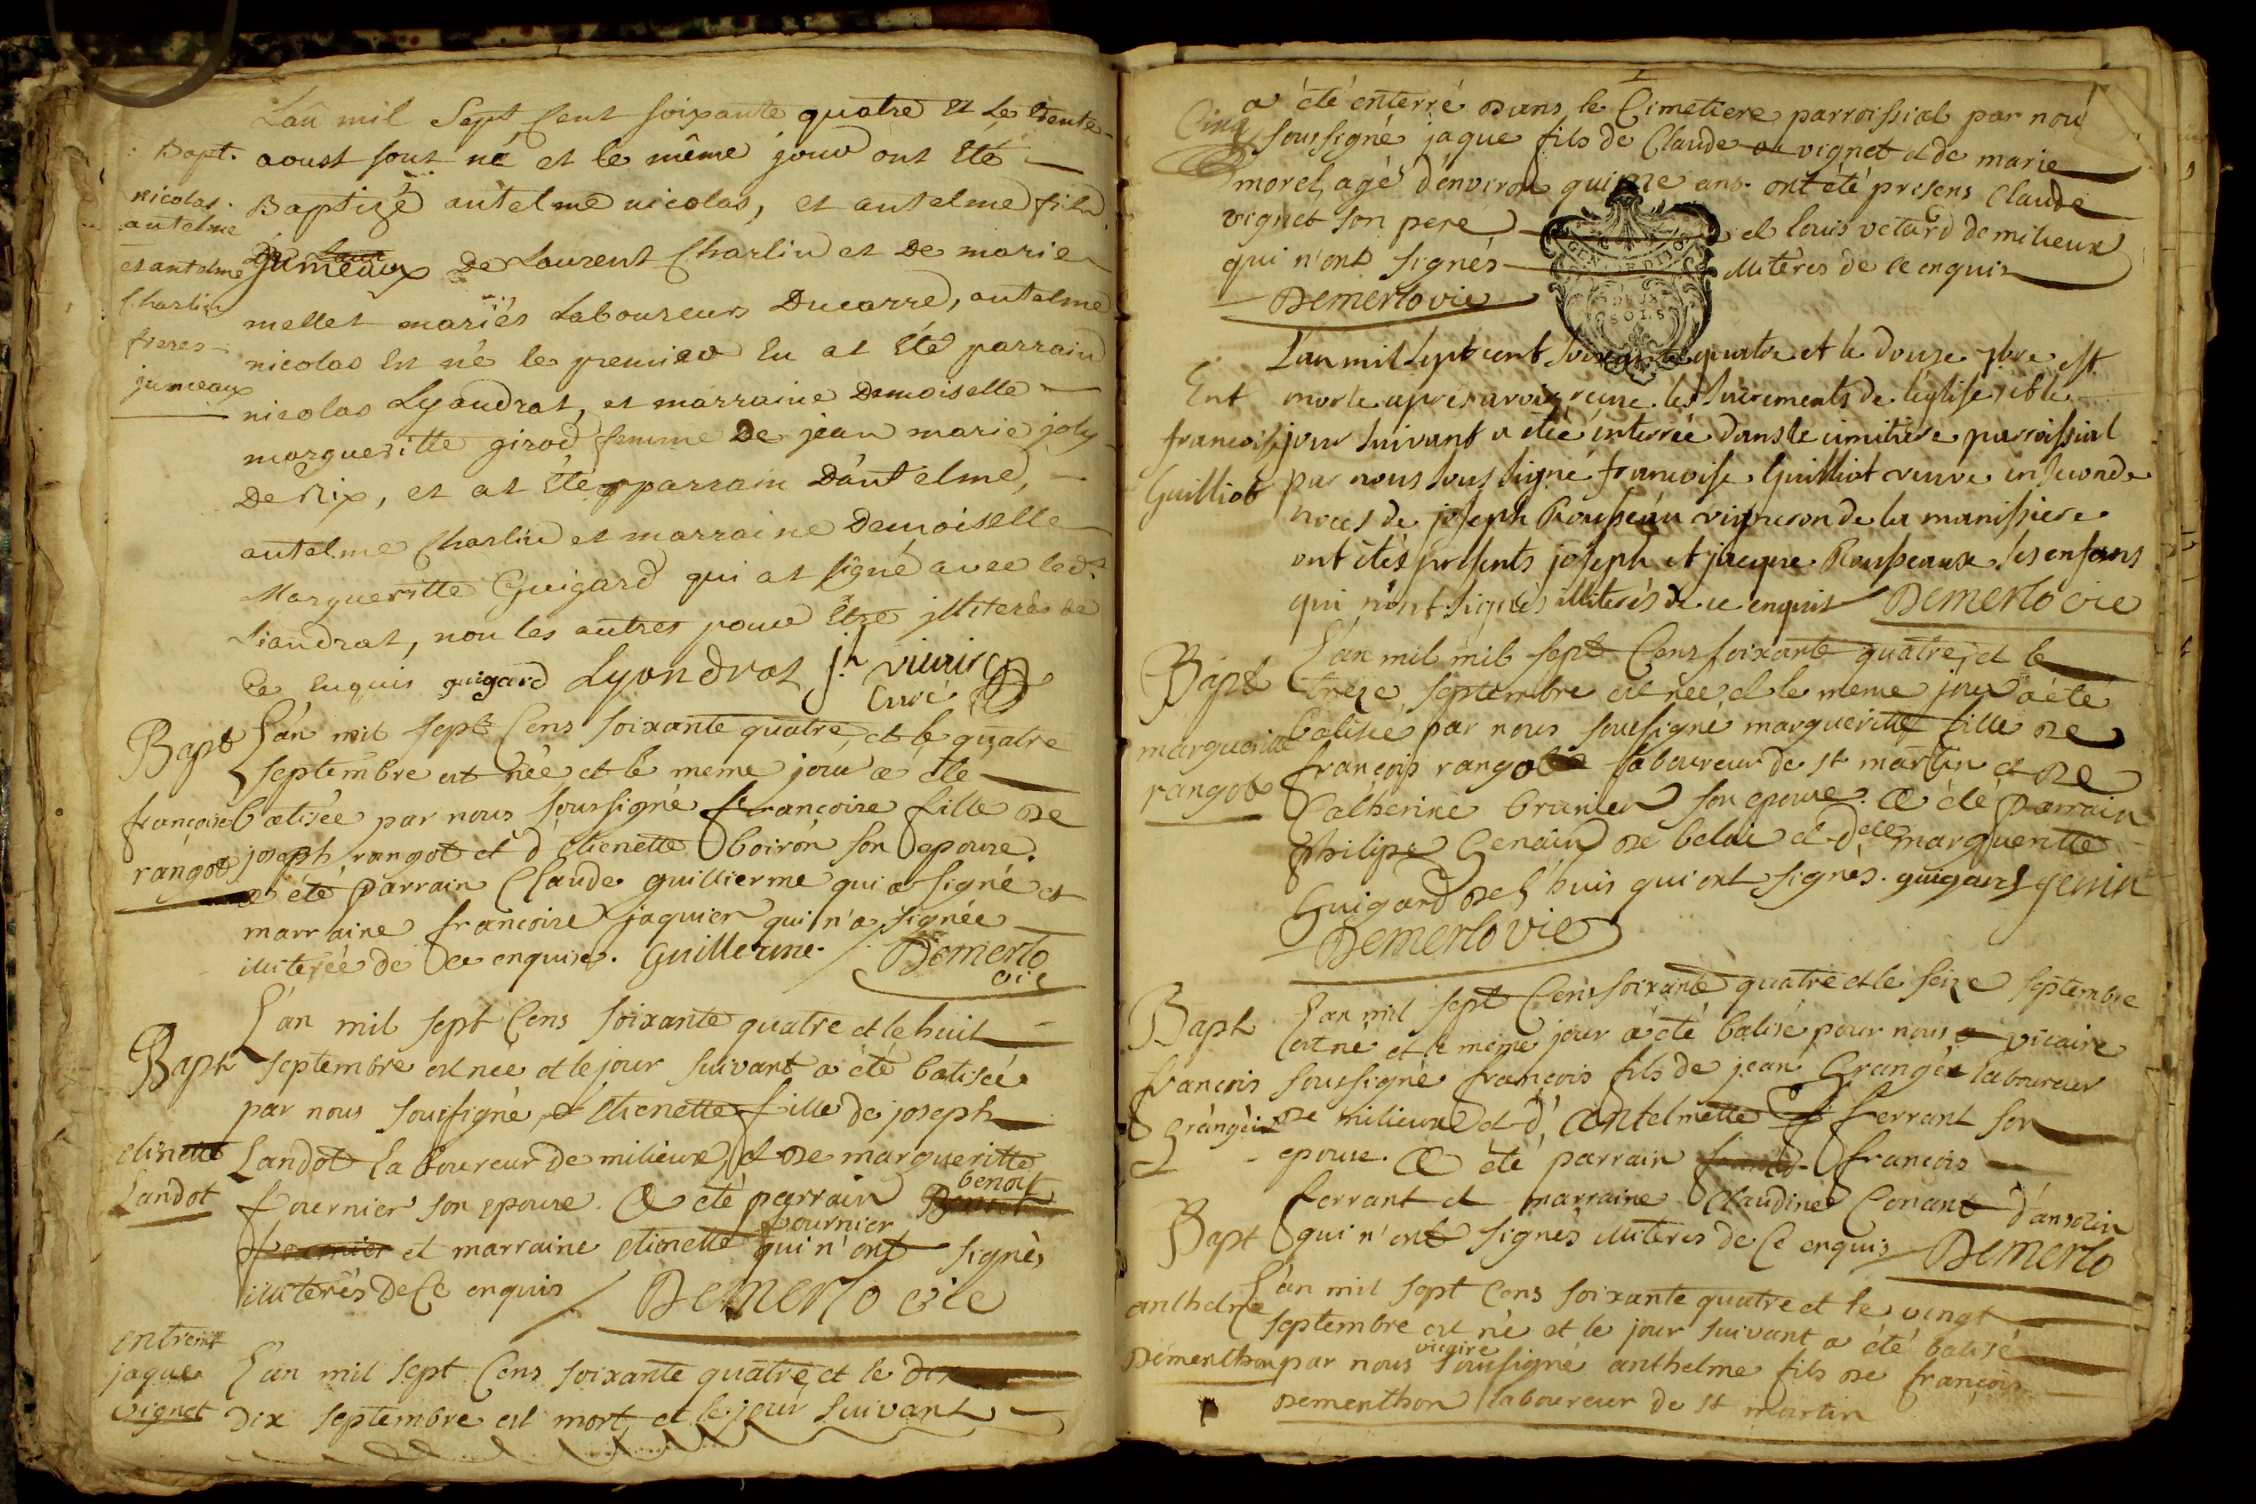 L'an mil Sept Cent soixante quatre et le trente
Bapt. aoust sont né et le même jour ont Eté
nicolas Baptizé antelme nicolas, et antelme fils
antelme
et antelme jumeaux De Laurent Charlin et De marie
Charlin mellet mariés Laboureurs Ducarre, antelme
freres nicolas est né le premier Eu at Eté parrain
jumeaux nicolas Lyandrat, et marraine Demoiselle
margueritte girod femme De jean marie joly
De Rix, et at Eté parrain D'antelme,
antelme Charlin et marraine Demoiselle
Margueritte Guigard qui at signé avec led.
Liandrat, non les autres pour Etre jlliterés de
Ce Enquis guigard Lyandrat jh vivier
Curé
Bapt L'an mil sept Cens soixante quatre, et le quatre
septembre est née et le meme jour a été
francoise batisée par nous soussigné francoise fille de
rangot joseph rangot et d'étienette boiron son epouse.
a été parrain Claude guillierme qui a signé et
marraine francoise jaquier qui n'a signée
illiterée de Ce enquise. Guillerme. Demerlo
vic
L'an mil sept Cens soixante quatre et le huit
Bapt septembre est née et le jour suivant a été batisée
par nous soussigné, etienette fille de joseph
etinette Landot laboureur de milieux, et de margueritte
Landot fournier son epouse. A été parrain benoit
fournier
et marraine etienette qui n'ont signés
illiterés de Ce enquis Demerlo vic
Enterrement
jaque L'an mil sept Cens soixante quatre, et le
vignet Dix septembre est mort, et le jour suivant
a été enterré Dans le Cimetiere parroissial par nou
Cinq soussigné jaque fils de Claude vignet et de marie
morel, agé d'environ quinze ans. ont été presens Claude
vignet son pere et louis vetard de milieux
qui n'ont signés illiterés de Ce enquis
Demerlo vic
GEN
DEUX
SOLS
L'an mil sept cent soixante quatre et le douze 7bre est
Ent morte apres avoir recue les sacrements de l'eglise, et le
francoise jour suivant a étée enterrée dans le cimitiere parroissial
Guilliot par nous soussigné francoise Guilliot veuve en seconde
noces de joseph Rousseau vigneron de la manissiere
ont étés presents joseph et jacque Rousseaux ses enfans
qui n'ont signés illiterés de ce enquis Demerlo vic
Bapt L'an mil mil sept Cens soixante quatre, et le
treze septembre est née et le meme jour a été
margueritte batisée par nous soussigné margueritte fille de
rangot françois rangot laboureur de st martin et de
Catherine brunier son epouse. A été parrain
philipe Genain de belai et delle margueritte
Guigard de l'huis qui ont signés. guigard genin
Demerlo vic
Bapt L'an mil sept Cens soixante quatre et le seize septembre
est né et le même jour a été batisé pour nous vicaire
francois soussigné françois fils de jean Grangér laboureur
de milieux et d'antelmette ferrant son
epouse. A été parrain françois
ferrant et marraine Claudine Conant d'ansolin
qui n'ont signés illiterés de Ce enquis Demerlo
Bapt L'an mil sept Cens soixante quatre et le vingt
anthelme septembre est né et le jour suivant a été batisé
vicaire
Dementhon par nous soussigné anthelme fils de françois
Dementhon laboureur de st martin